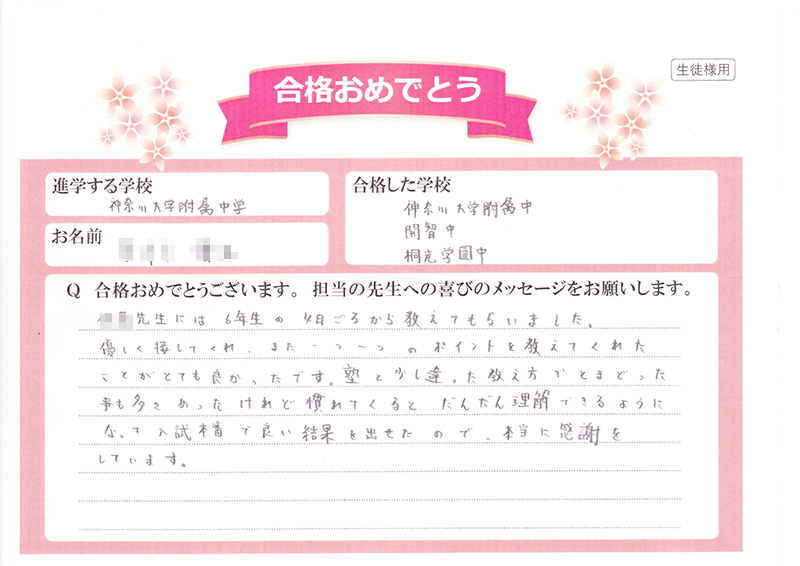 生徒様用
合格おめでとう
進学する学校
神奈川大学附属中学
お名前
合格した学校
神奈川大学附属中
開智中
桐光学園中
Q 合格おめでとうございます。担当の先生への喜びのメッセージをお願いします。
先生には6年生の 月ごろから教えてもらいました。
優しく接してくれ、また一つ一つのポイントを教えてくれた
ことがとても良かったです。塾と少し違った教え方でとまどった
事も多々あったけれど慣れてくるとだんだん理解できるように
なって入試本番で良い結果を出せたので、本当に感謝を
しています。